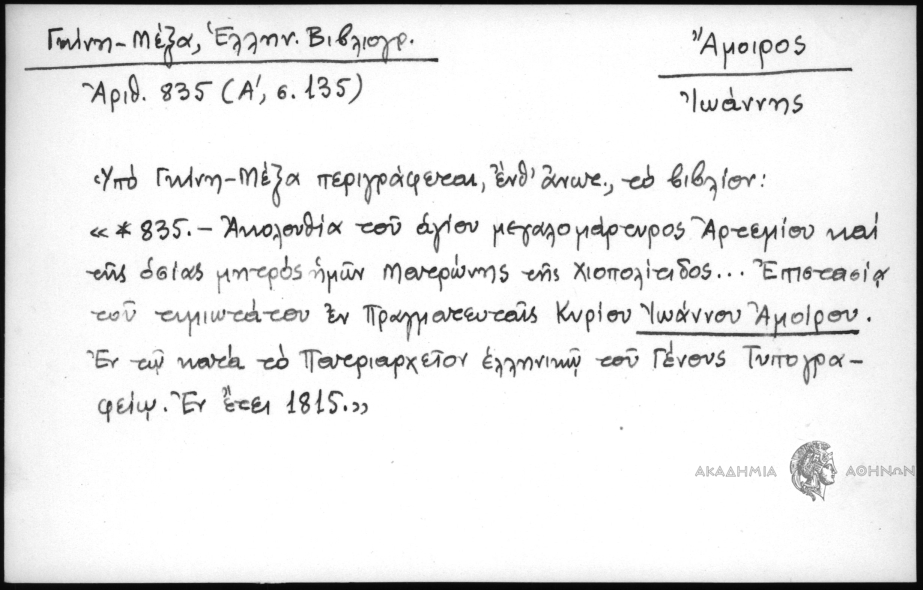 Γκίνη-Μέξα, Ἑλλην. Βιβλιογρ.
Ἀριθ. 835 (Α', σ. 135)
Ἄμοιρος
Ἰωάννης
Ὑπὸ Γκίνη-Μέξα περιγράφεται, ἔνθ' ἄνωτ., τὸ βιβλίον:
«*835.- Ἀκολουθία τοῦ ἁγίου μεγαλομάρτυρος Ἀρτεμίου καὶ
τῆς ὁσίας μητρός ἡμῶν Ματρώνης τῆς Χιοπολίτιδος... Ἐπιστασίᾳ
τοῦ τιμιωτάτου ἐν Πραγματευταῖς Κυρίου Ἰωάννου Ἀμοίρου.
Ἐν τῷ κατὰ τὸ Πατριαρχεῖον ἑλληνικῷ τοῦ Γένους Τυπογρα-
φείῳ. Ἐν ἔτει 1815.»
ΑΚΑΔΗΜΙΑ ΑΘΗΝΩΝ